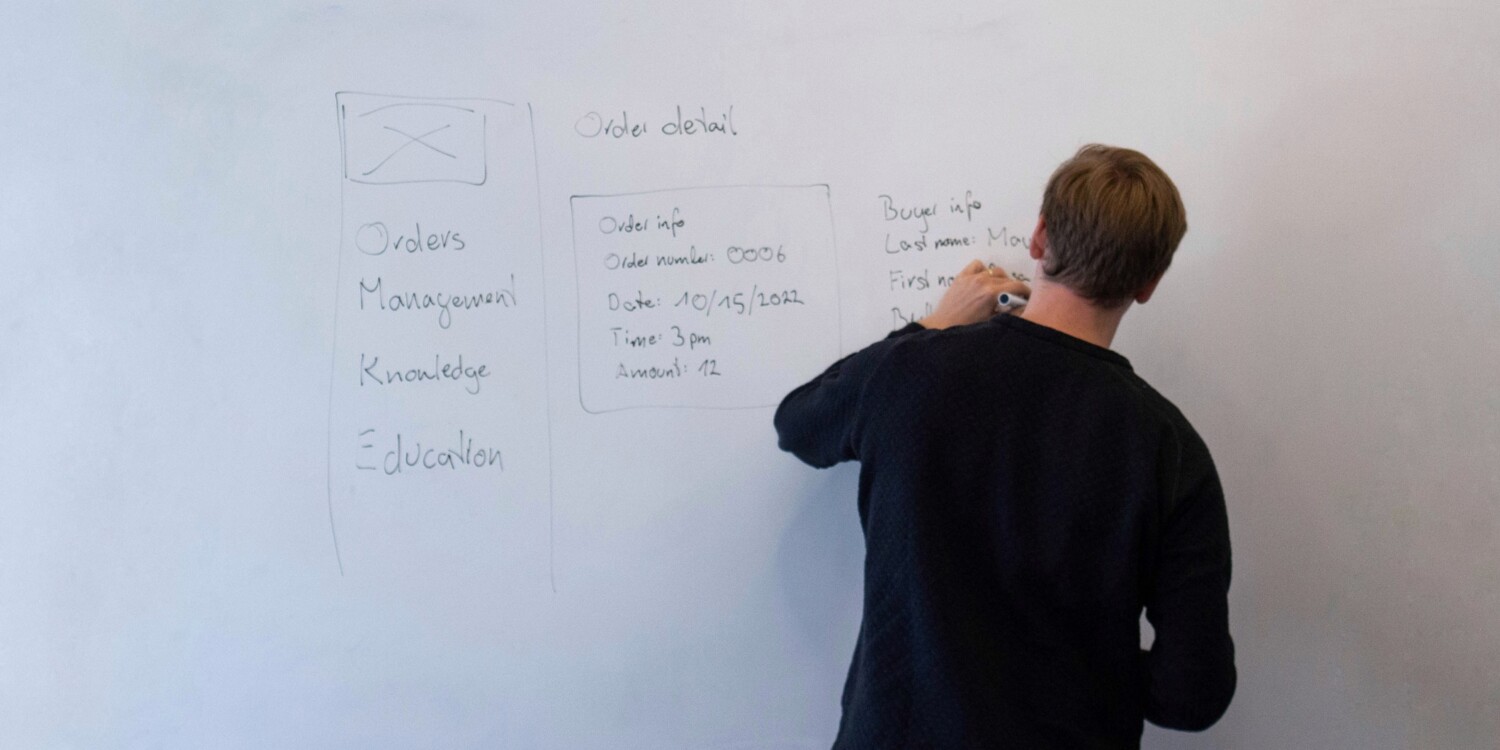 Orders
Management
Knowledge
Education
Order detail
Order info
Order number: 0006
Date: 10/15/2022
Time: 3pm
Amount: 12
Buyer info
Last name:
First